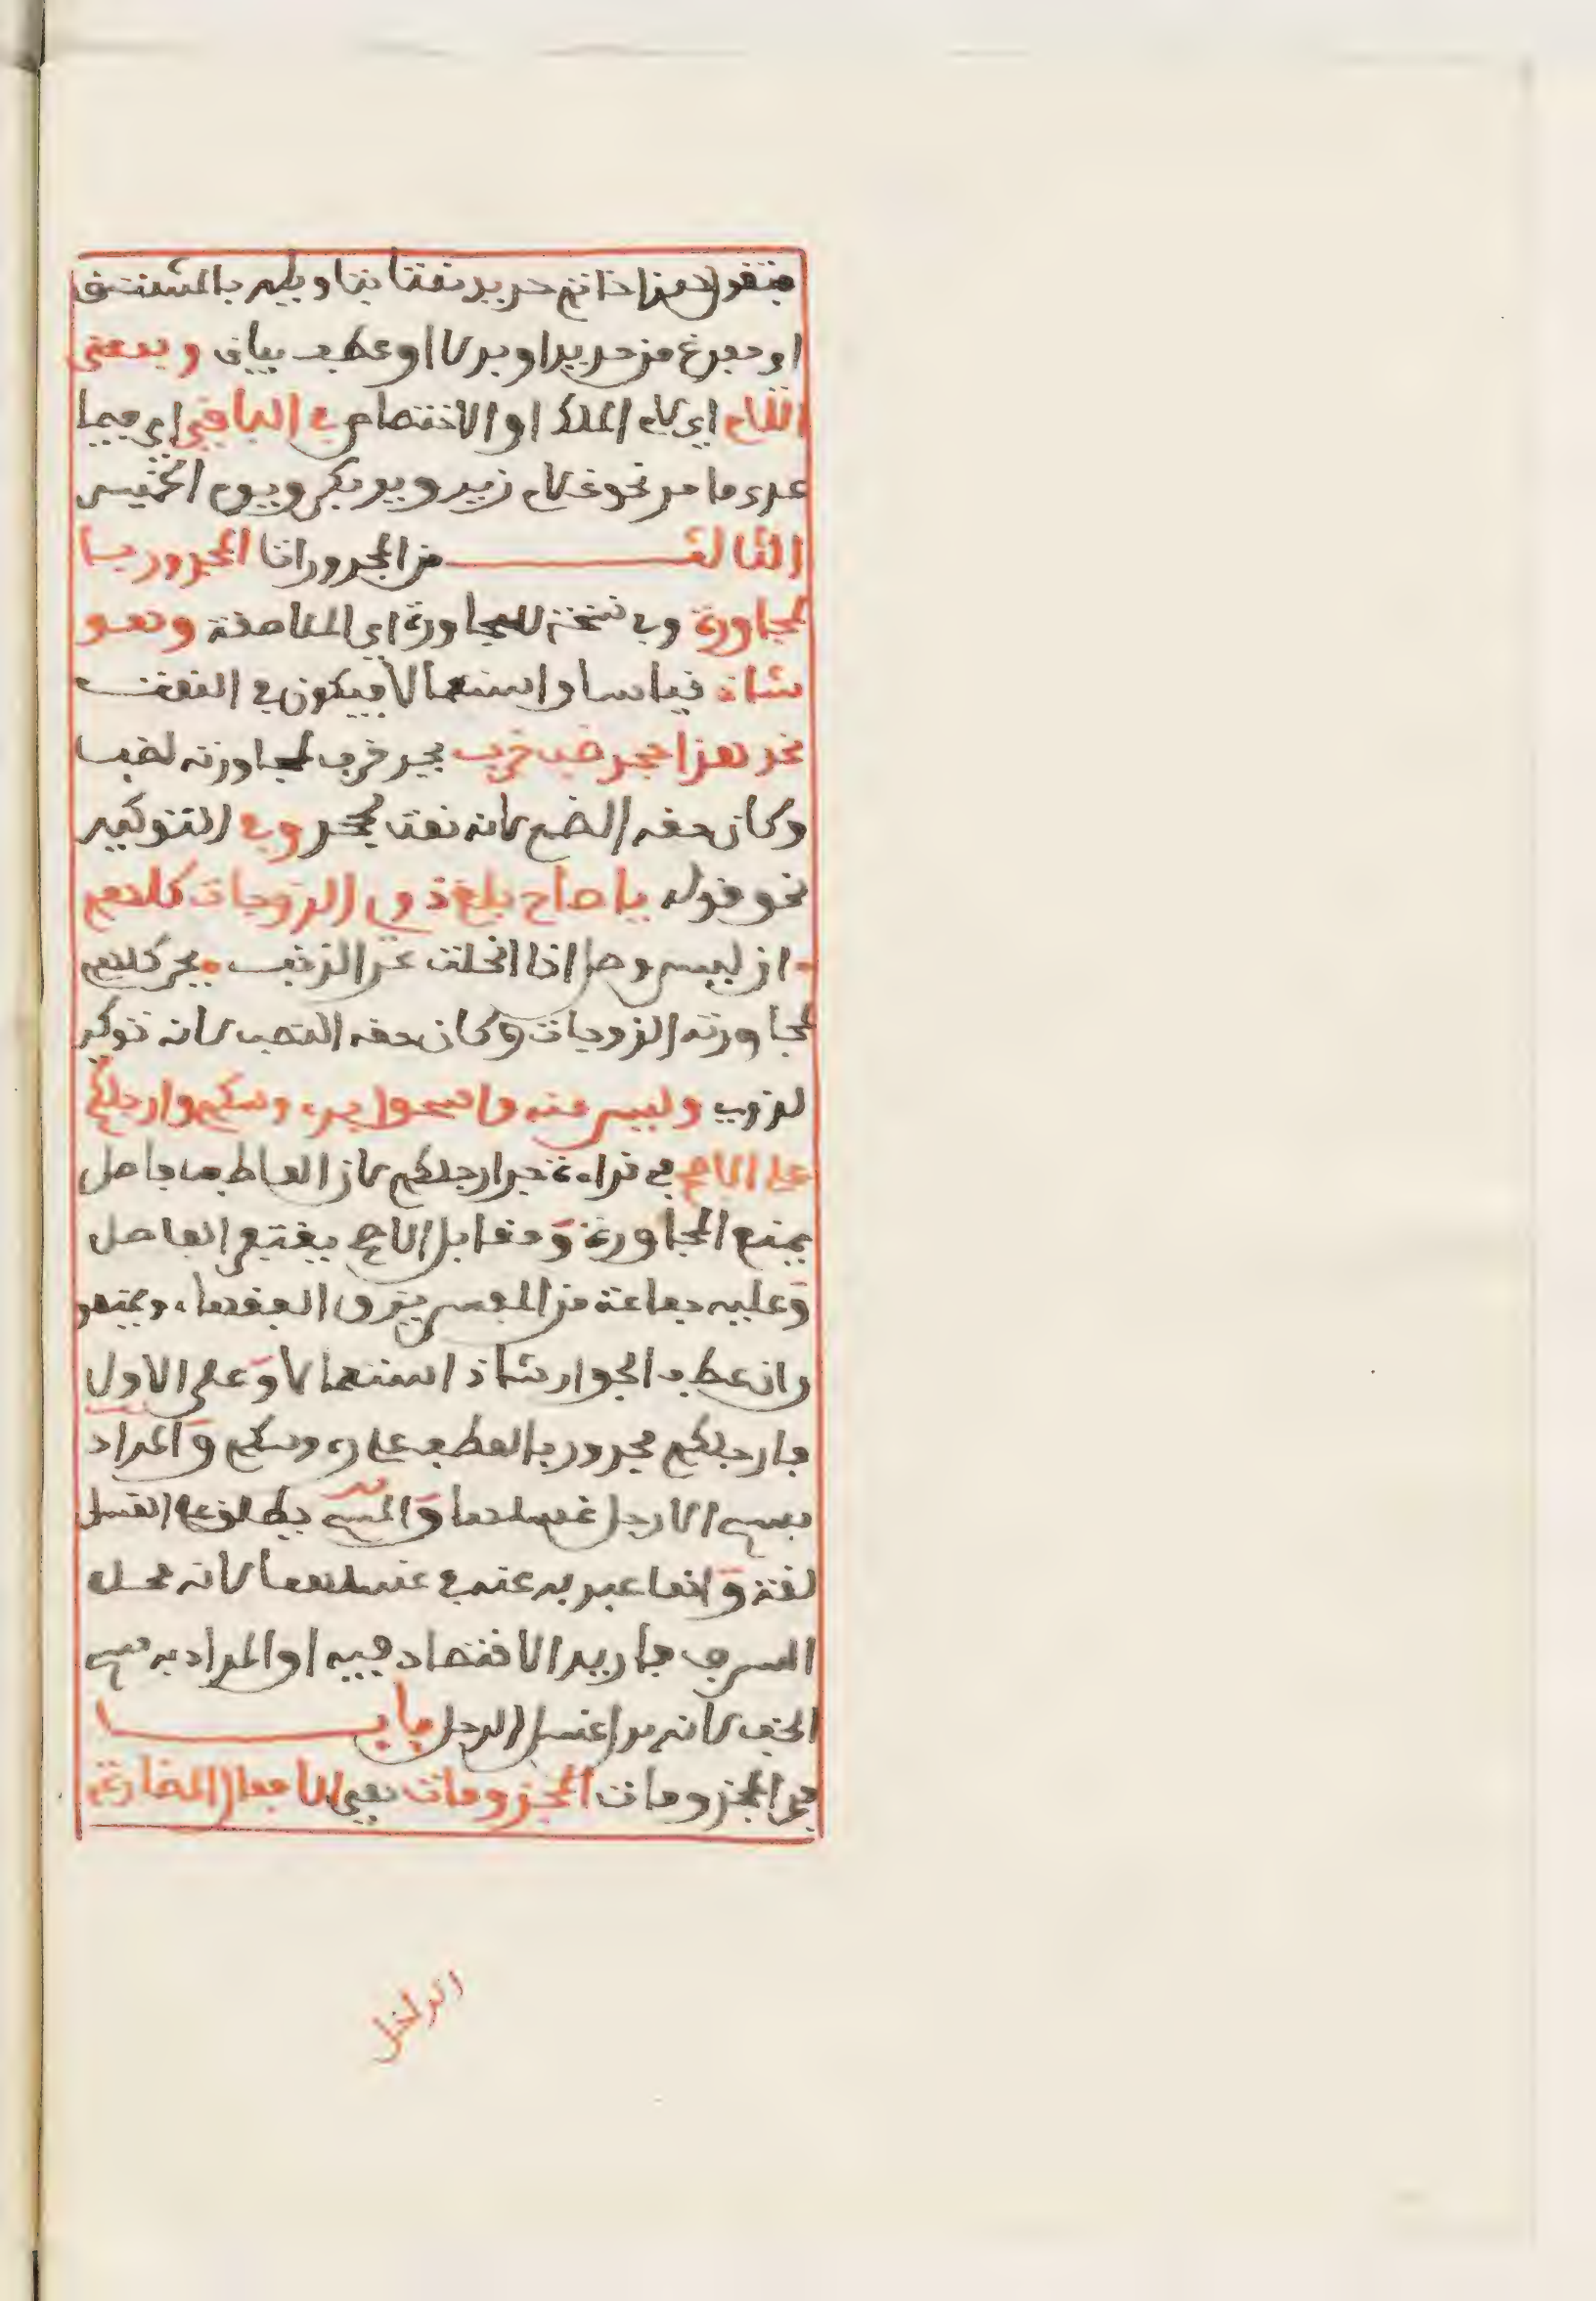 فتقول هذا خاتم حديد نعتا بتاويله بالمشتق
او مفرغ من حديد او بدلا او عطف بيان وبمعنى
اللام اي لام الملك او الاختصاص في الباقي اي فيما
عدى ما مر نحو غلام زيد ويد بكر ويوم الخميس
الثالث من المجرورات المجرور با
لمجاورة وفي نسخة للمجاورة اي الملاصقة وهو
شاذ قياسا واستعمالا فيكون في النعت
نحو هذا جحر ضب خرب بجر خرب لمجاورته لضب
وكان حقه الضم لانه نعت لجحر وفي التوكيد
نحو قوله يا صاح بلغ ذوي الزوجات كلهم
ان ليس وصل اذا انحلت عرى الذنب بجر كلهم
لمجاورته الزوجات وكان حقه النصب لانه توكيد
لذوي وليس منه وامسحوا برءوسكم وارجلكم
على الاصح في قراءة جر ارجلكم لان العاطف فاصل
يمنع المجاورة ومقابل الاصح يغتفر الفاصل
وعليه جماعة من المفسرين والفقهاء
وان عطف الجوار شاذ استعمالا وعلى الاول
فارجلكم مجرور بالعطف على رءوسكم والمراد
بمسح الارجل غسلها والمسح يطلق على الغسل
لغة وانما عبر به عنه في غسلها لانه محل
السرف فاريد الاقتصاد فيه او المراد به مسح
الخف لانه بدل غسل الرجل باب
جر المجزومات المجزومات يعني الافعال المضارعة
الداخل